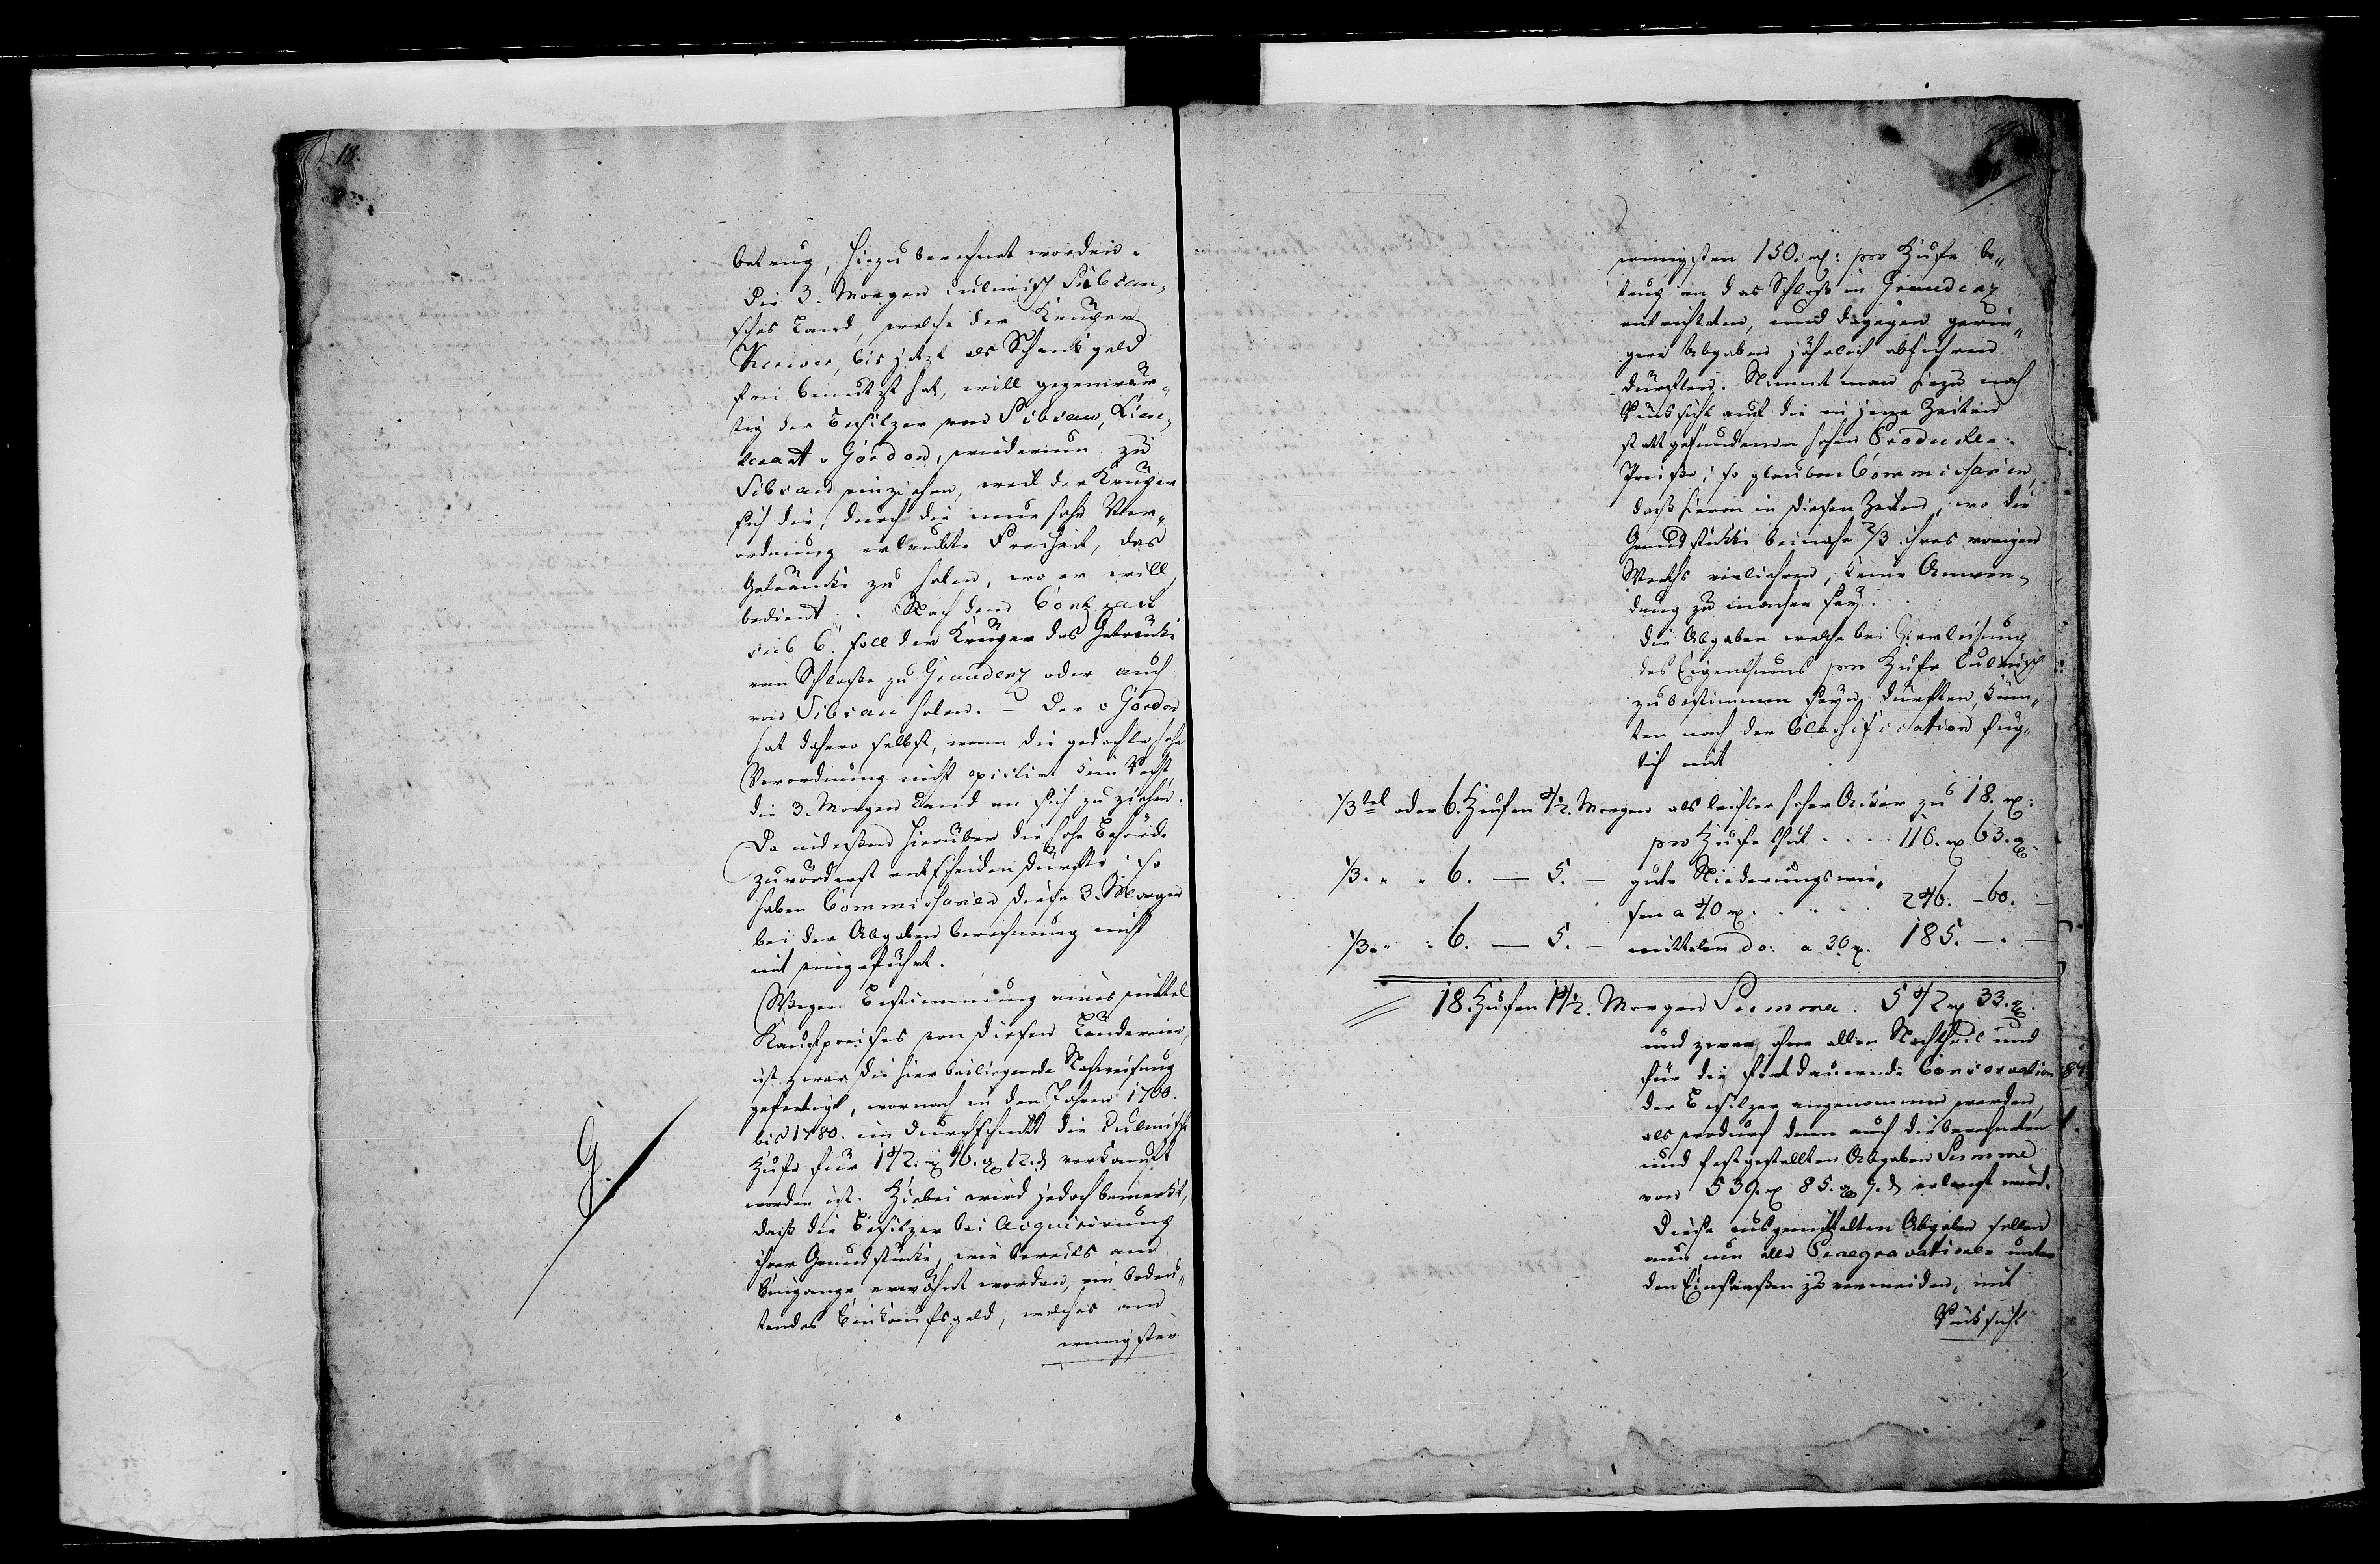 18.
betrug, hiezu berechnet worden.
Die 3. Morgen culmisch Sibsau-
sches Land, welche der Krüger
bis jetzt als Schankgeld
frei benutzt hat, will gegenwär-
tig der Besitzer von Sibsau, Lieu-
tenant v Gordon, wiederum zu
Sibsau einziehen, weil der Krüger
sich die, durch die neue hohe Ver-
ordnung erlaubte Freiheit, das
Getränke zu holen, wo er will,
bedient. Nach dem Contract
sub C. soll der Krüger das Getränke
vom Schlosse zu Graudenz oder auch
von Sibsau holen. – Der v Gordon
hat dahero selbst, wenn die gedachte hohe
Verordnung nicht existirt kein Recht,
die 3. Morgen Land an sich zu ziehen.
Da indessen hierüber die hohe Behörde
zuvörderst entscheiden dürfte; so
haben Commissarien diese 3. Morgen
bei der Abgaben Berechnung nicht
mit eingeführt.
Wegen Bestimmung eines mittel
Kaufpreises von diesen Ländereien,
ist zwar die hier beiliegende Nachweisung
gefertigt, wornach in den Jahren 1760.
bis 1780. im Durchschnitt die Culmische
Hufe für 142. rt 46. g 12. d verkauft
worden ist. Hiebei wird jedoch bemerkt,
daß die Besitzer bei Acquirirung
ihrer Grundstücke, wie bereits am
Eingange erwähnt worden, ein bedeu-
tendes Einkaufsgeld, welches am
wenigsten
G.
wenigsten 150. rt: pro Hufe be-
trug an das Schloß in Graudenz
entrichteten, und dagegen gerin-
gere Abgaben jährlich abführen
durften. Nimmt man hiezu noch
Rücksicht auf die in jene Zeiten
statt gefundenen hohen Producte-
Preiße; so glauben Commissarien,
daß hievon in diesen Zeiten, wo die
Grundstücke beinahe 2/3 ihres vorigen
Werths verliehren, keine Anwen-
dung zu machen sey.
Die Abgaben welche bei Verleihung
des Eigenthums pro Hufe Culmisch
zu bestimmen seyn dürften, könn-
ten nach der Classification füg-
lich mit
1/3tel oder 6. Hufen 4 1/2. Morgen als leichter hoher Acker zu 18. rt:
pro Hufe thut . . . . 110. rt 63. g
1/3. " " 6. — 5. — gute Niederungswie-
sen a 40 rt . . . . 246. – 60. –
1/3. " " 6. — 5. — mittlere do: a 30 rt. 185. – . –
18. Hufen 14 1/2. Morgen Summa. 542 rt 33. g
und zwar, ohne allen Nachtheil und
für die fortdauernde Conservation
der Besitzer angenommen werden,
als wodurch denn auch die berechneten
und festgestellten Abgaben Summe
von 539. rt 85. g 9. d erlangt wird.
Diese ausgemittelten Abgaben sollen
nun um alle Praegravationen unter
den Einsaaßen zu vermeiden, mit
Rücksicht